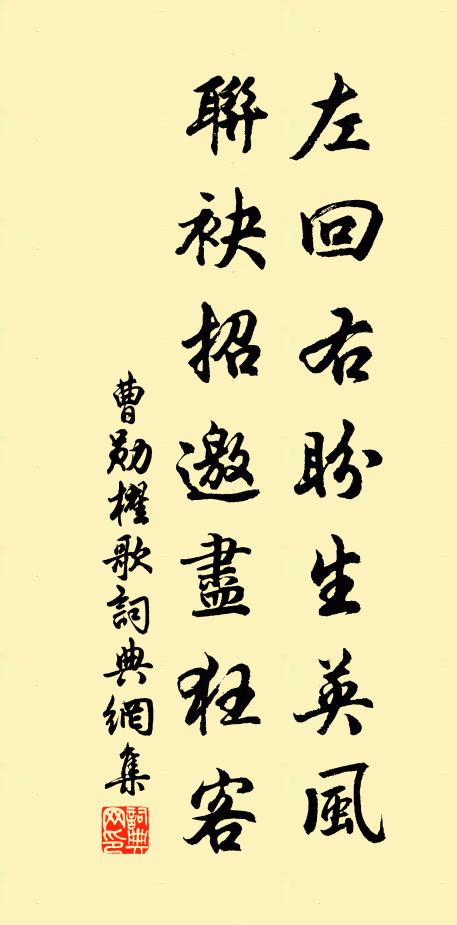 左回右盼生英風
聯袂招邀盡狂客
曹勛櫂歌詞典網集
詞典網印